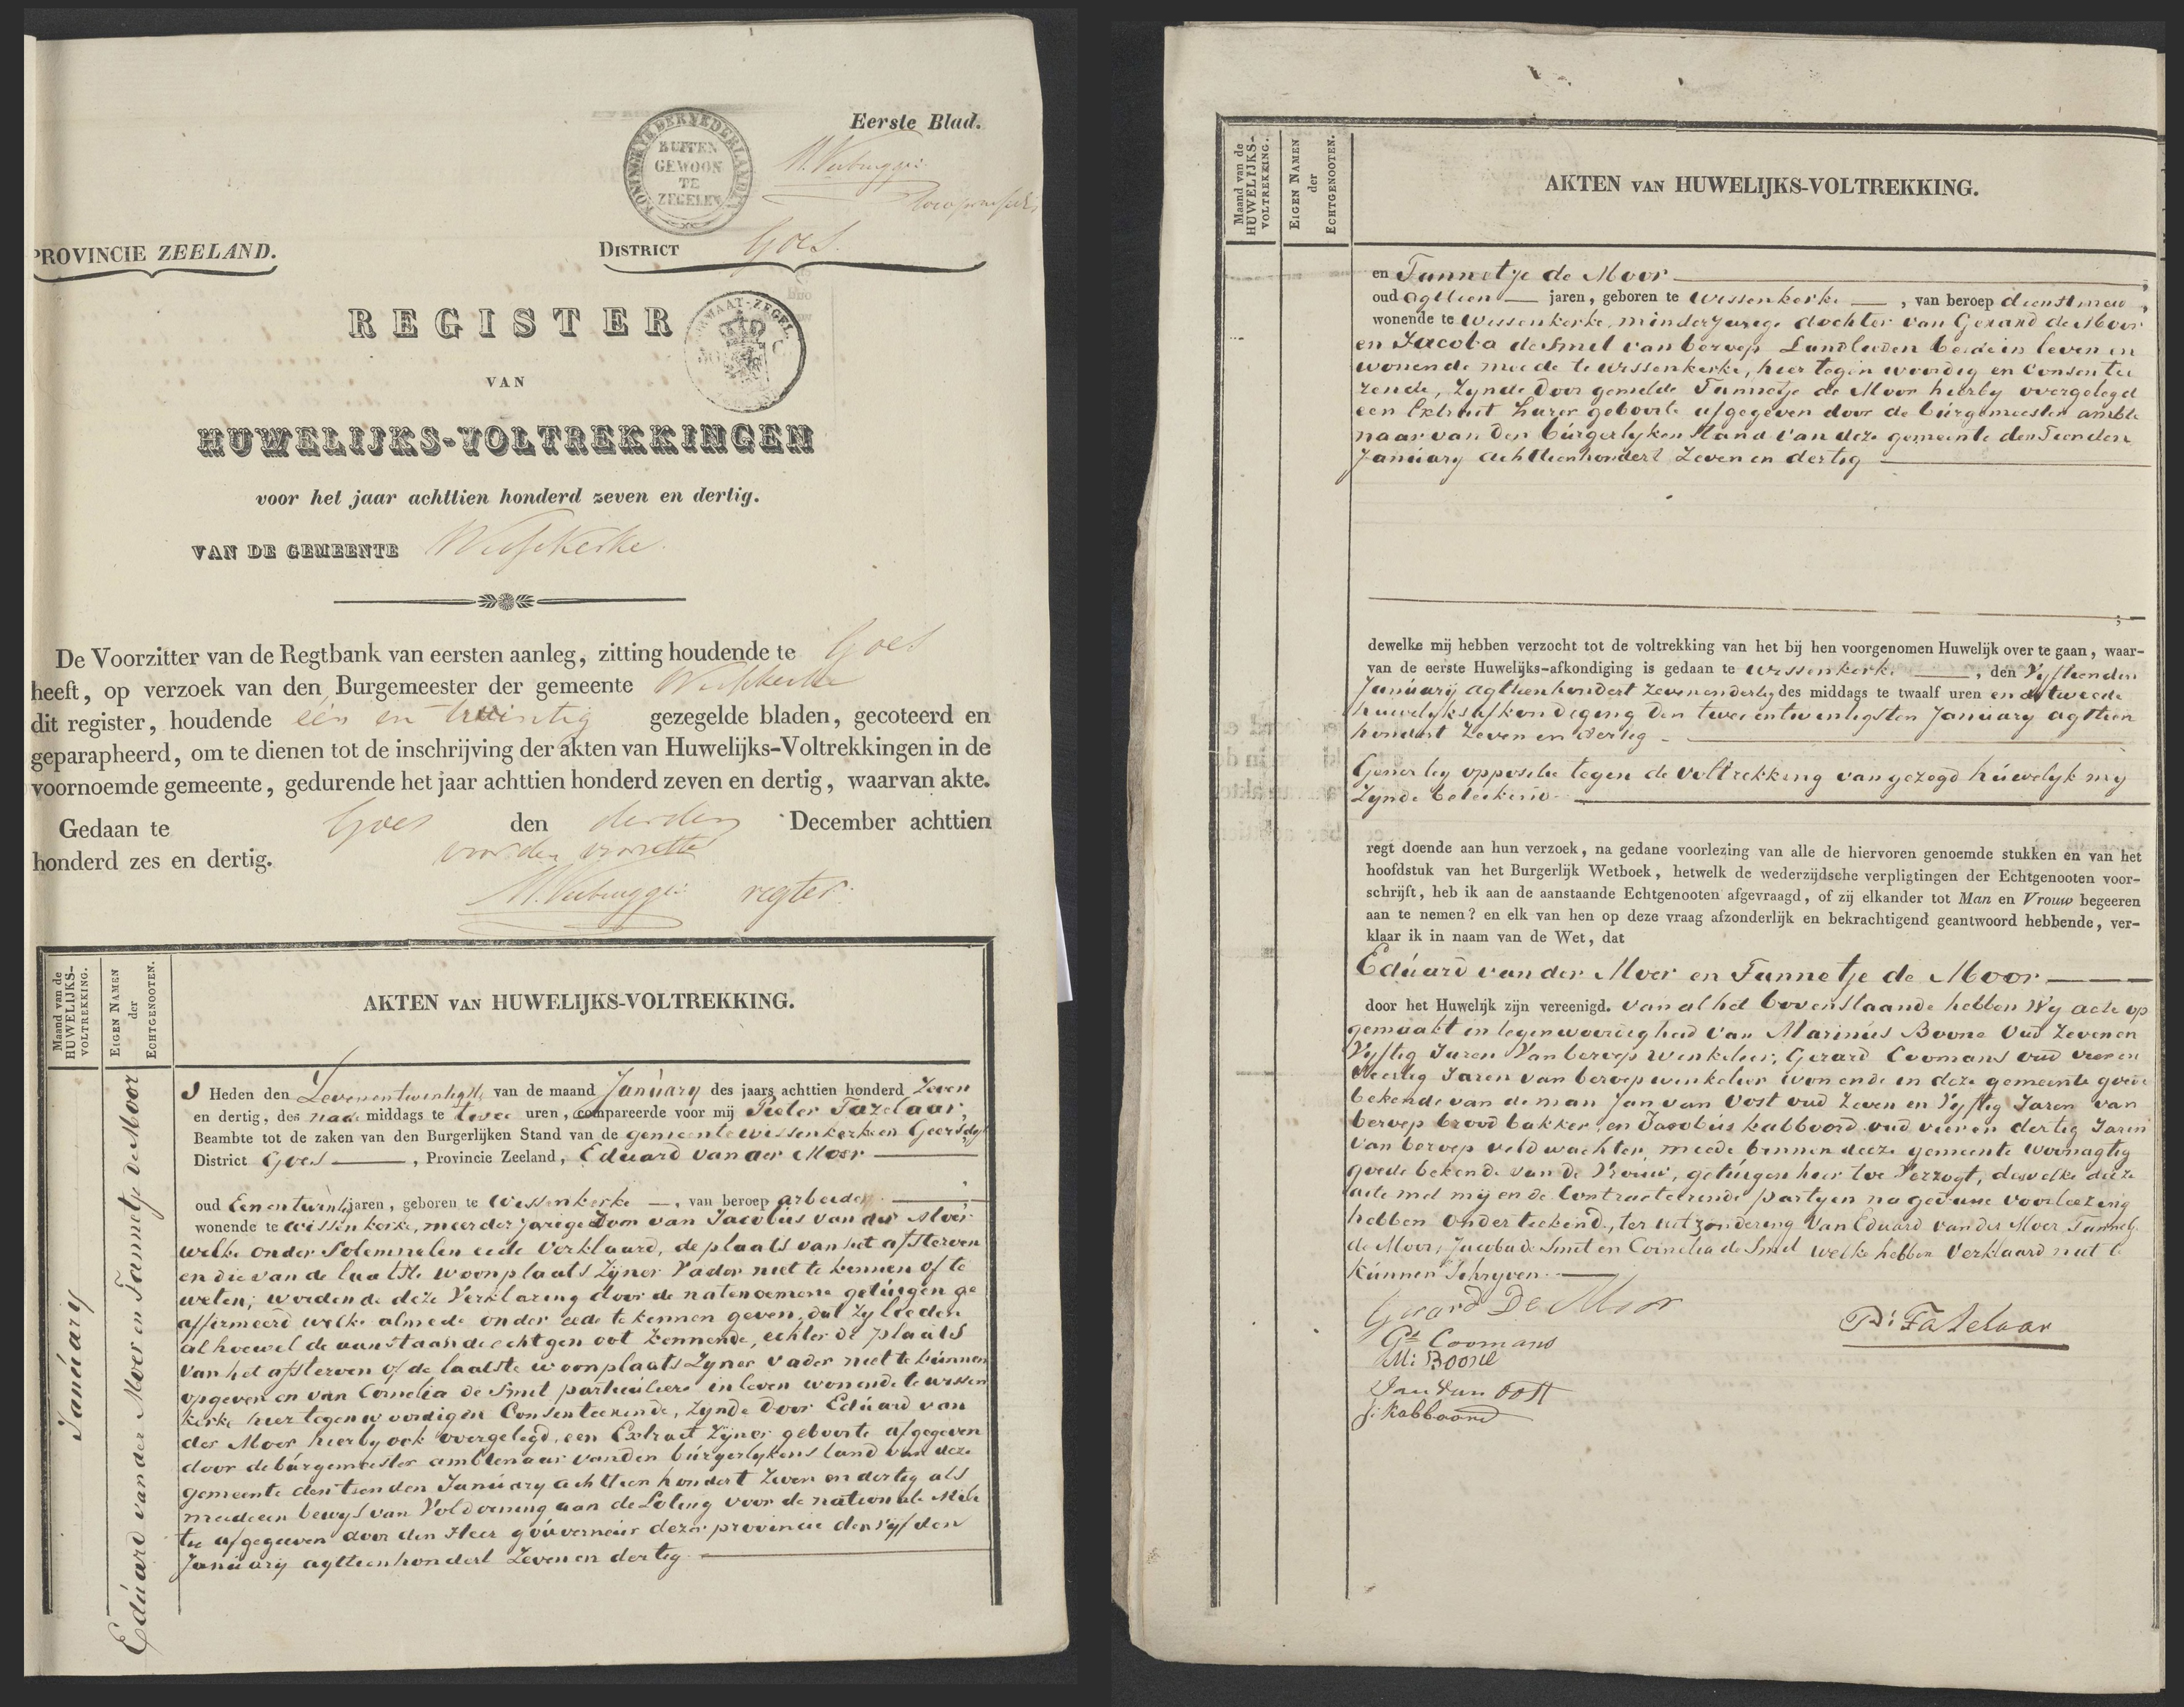 Eerste Blad.
KONINGRYK DER NEDERLANDEN
BUITEN
GEWOON
TE
ZEGELEN
M. Verbrugge
PROVINCIE ZEELAND.
DISTRICT Goes.
REGISTER
VAN
HUWELIJKS-VOLTREKKINGEN
voor het jaar achttien honderd zeven en dertig.
VAN DE GEMEENTE Wissekerke.
De Voorzitter van de Regtbank van eersten aanleg, zitting houdende te Goes
heeft, op verzoek van den Burgemeester der gemeente Wissekerke
dit register, houdende één en twintig gezegelde bladen, gecoteerd en
geparapheerd, om te dienen tot de inschrijving der akten van Huwelijks-Voltrekkingen in de
voornoemde gemeente, gedurende het jaar achttien honderd zeven en dertig, waarvan akte.
Gedaan te Goes den derden December achttien
honderd zes en dertig. voor den voorzitter
M. Verbrugge regter.
Maand van de HUWELIJKS-VOLTREKKING.
EIGEN NAMEN der ECHTGENOOTEN.
AKTEN VAN HUWELIJKS-VOLTREKKING.
Januarij
Eduard van der Moer en Tannetje de Moor
Heden den Zevenentwintigste van de maand January des jaars achttien honderd Zeven
en dertig, des nade middags te twee uren, compareerde voor mij Pieter Fazelaar,
Beambte tot de zaken van den Burgerlijken Stand van de gemeente wissenkerke en Geersdyk
District Goes, Provincie Zeeland, Eduard van der Moer
oud Eenentwintig jaren, geboren te Wissenkerke, van beroep arbeider
wonende te Wissenkerke, meerderjarige Zoon van Jacobus van der Moer
welke onder Solemnelen eede Verklaard, de plaats van het afsterven
en die van de laatste woonplaats Zijner Vader niet te kennen of te
weten; wordende deze Verklaring door de natenoemene getuigen ge
affirmeerd welke almede onder eede te kennen geven, dat Zy leeden
alhoewel de aanstaande echtgenoot kennende, echter de plaats
van het afsterven of de laatste woonplaats Zyner Vader niet te kunnen
opgeven en van Cornelia de Smet particuliere in leven wonende te wissen
kerke hier tegenwoordig en Consenteerende, Zynde door Eduard van
der Moer hierby ook overgelegd, een Extract Zyner geboorte afgegeven
door de burgemeester ambtenaar van den burgerlyken stand van deze
gemeente den tienden January achttien hondert Zeven en dertig als
meede een bewys van Voldoening aan de Loting voor de nationale Mili
tie afgegeeven door den Heer gouverneur dezer provincie den vyfden
January agttienhondert Zeven en dertig
Maand van de HUWELIJKS-VOLTREKKING.
EIGEN NAMEN der ECHTGENOOTEN.
AKTEN VAN HUWELIJKS-VOLTREKKING.
en Tannetje de Moor
oud agttien jaren, geboren te Wissenkerke, van beroep dienstmeid
wonende te Wissenkerke, minderjarige dochter van Gerard de Moor
en Jacoba de Smet van beroep Landlieden beide in leven en
wonende meede te wissenkerke, hier tegenwoordig en Consentee
rende, Zynde door gemelde Tannetje de Moor hierby overgelegd
een Extract harer geboorte afgegeven door de burgemeester ambte
naar van den burgerlyken stand van deze gemeente den Tienden
January achttienhondert Zeven en dertig
dewelke mij hebben verzocht tot de voltrekking van het bij hen voorgenomen Huwelijk over te gaan, waar-
van de eerste Huwelijks-afkondiging is gedaan te Wissenkerke, den Vyftienden
January agttienhondert Zevenendertig des middags te twaalf uren en de tweede
huwelyksafkondiging den tweeentwintigsten January agttien
hondert Zeven en dertig
Geenerley oppositie tegen de Voltrekking van gezegd huwelyk my
Zynde beteekend
regt doende aan hun verzoek, na gedane voorlezing van alle de hiervoren genoemde stukken en van het
hoofdstuk van het Burgerlijk Wetboek, hetwelk de wederzijdsche verpligtingen der Echtgenooten voor-
schrijft, heb ik aan de aanstaande Echtgenooten afgevraagd, of zij elkander tot Man en Vrouw begeeren
aan te nemen? en elk van hen op deze vraag afzonderlijk en bekrachtigend geantwoord hebbende, ver-
klaar ik in naam van de Wet, dat
Eduard van der Moer en Tannetje de Moor
door het Huwelijk zijn vereenigd. van al het bovenstaande hebben Wy acte op
gemaakt in tegenwoordigheid van Marinus Boone oud Zeven en
Vyftig Jaren van beroep winkelier, Gerard Coomans oud vier en
Veertig Jaren van beroep winkelier wonende in deze gemeente goede
bekende van de man Jan van Oost oud Zeven en Vyftig Jaren van
beroep brood bakker, en Jacobus kabboord oud vier en dertig Jaren
van beroep veldwachter, meede binnen deeze gemeente woonagtig
goede bekende van de Vrouw, getuigen hier toe Verzogt, dewelke deeze
acte met mij en de Contracteerende partyen na gedane voorleezing
hebben onderteekend, ter uitzondering van Eduard van der Moer Tannetje
de Moor, Jacoba de Smet en Cornelia de Smet welke hebben Verklaard niet te
kunnen Schryven.
Gerard De Moor
P: Fazelaar
Gd Coomans
M: Boone
Jan Van Oost
J: Kabboord